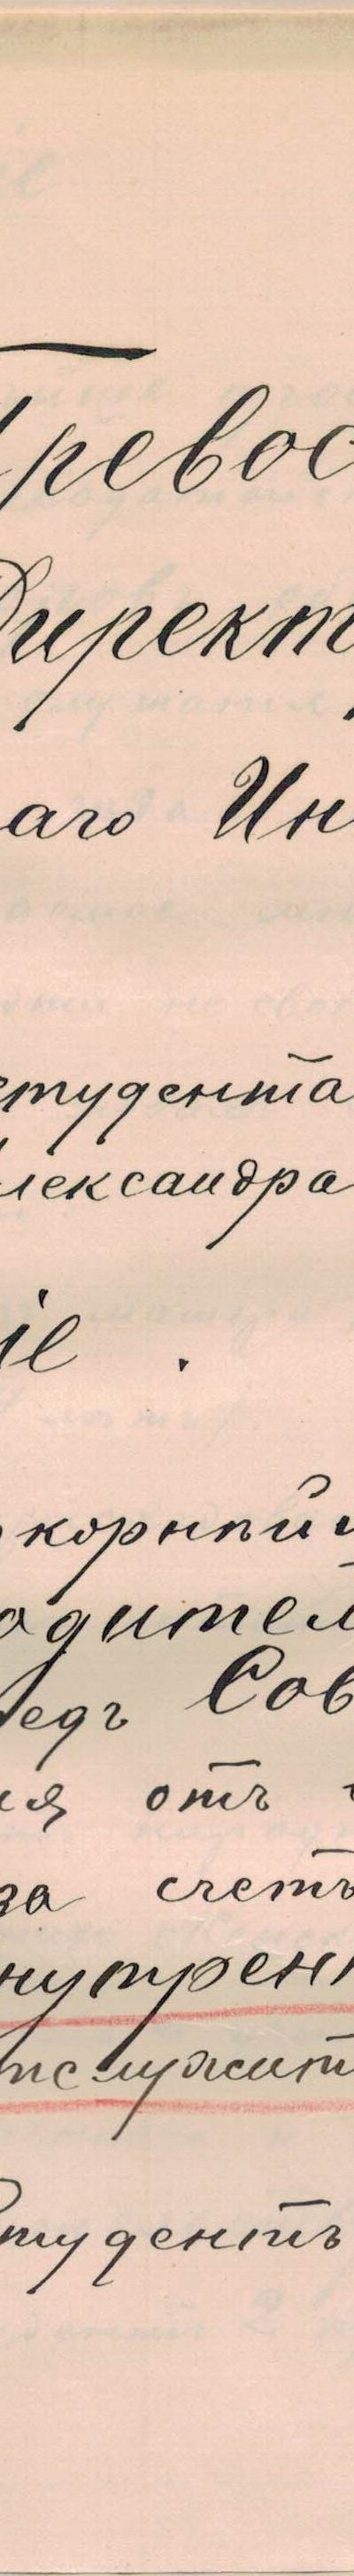 Превос
Директ
аго Ин
студента
лександра
іе .
корнѣйш
одител
едъ Сов
ия отъ
за счетъ
нутрен
тслужит
студентъ